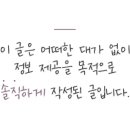 이 글은 어떠한 대가 없이
정보 제공을 목적으로
솔직하게 작성된 글입니다.